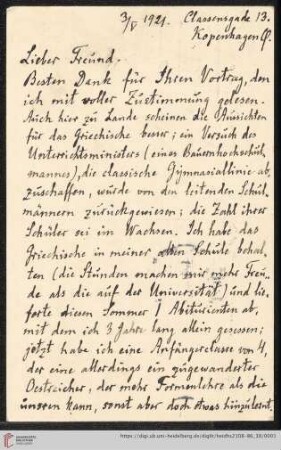 3/8 1921. Classensgade 13.
Kopenhagen Ø.
Lieber Freund.
Besten Dank für Ihren Vortrag, den
ich mit voller Zustimmung gelesen.
Auch hier zu Lande scheinen die Aussichten
für das Griechische besser; ein Versuch des
Unterrichtsministers (eines Bauernhochschul
mannes), die classische Gymnasiallinie ab
zuschaffen, wurde von den leitenden Schul
männern zurückgewiesen; die Zahl ihrer
Schüler sei im Wachsen. Ich habe das
Griechische in meiner alten Schule behal
ten (die Stunden machen mir mehr Freu
de als die auf der Universität) und lie
ferte diesen Sommer 1 Abiturienten ab,
mit dem ich 3 Jahre lang allein gesessen;
jetzt habe ich eine Anfängerclasse von 4,
der eine allerdings ein zugewanderter
Oestreicher, der mehr Formenlehre als die
unseren kann, sonst aber doch etwas
https://digi.ub.uni-heidelberg.de/diglit/heidhs2108-86_10/0001